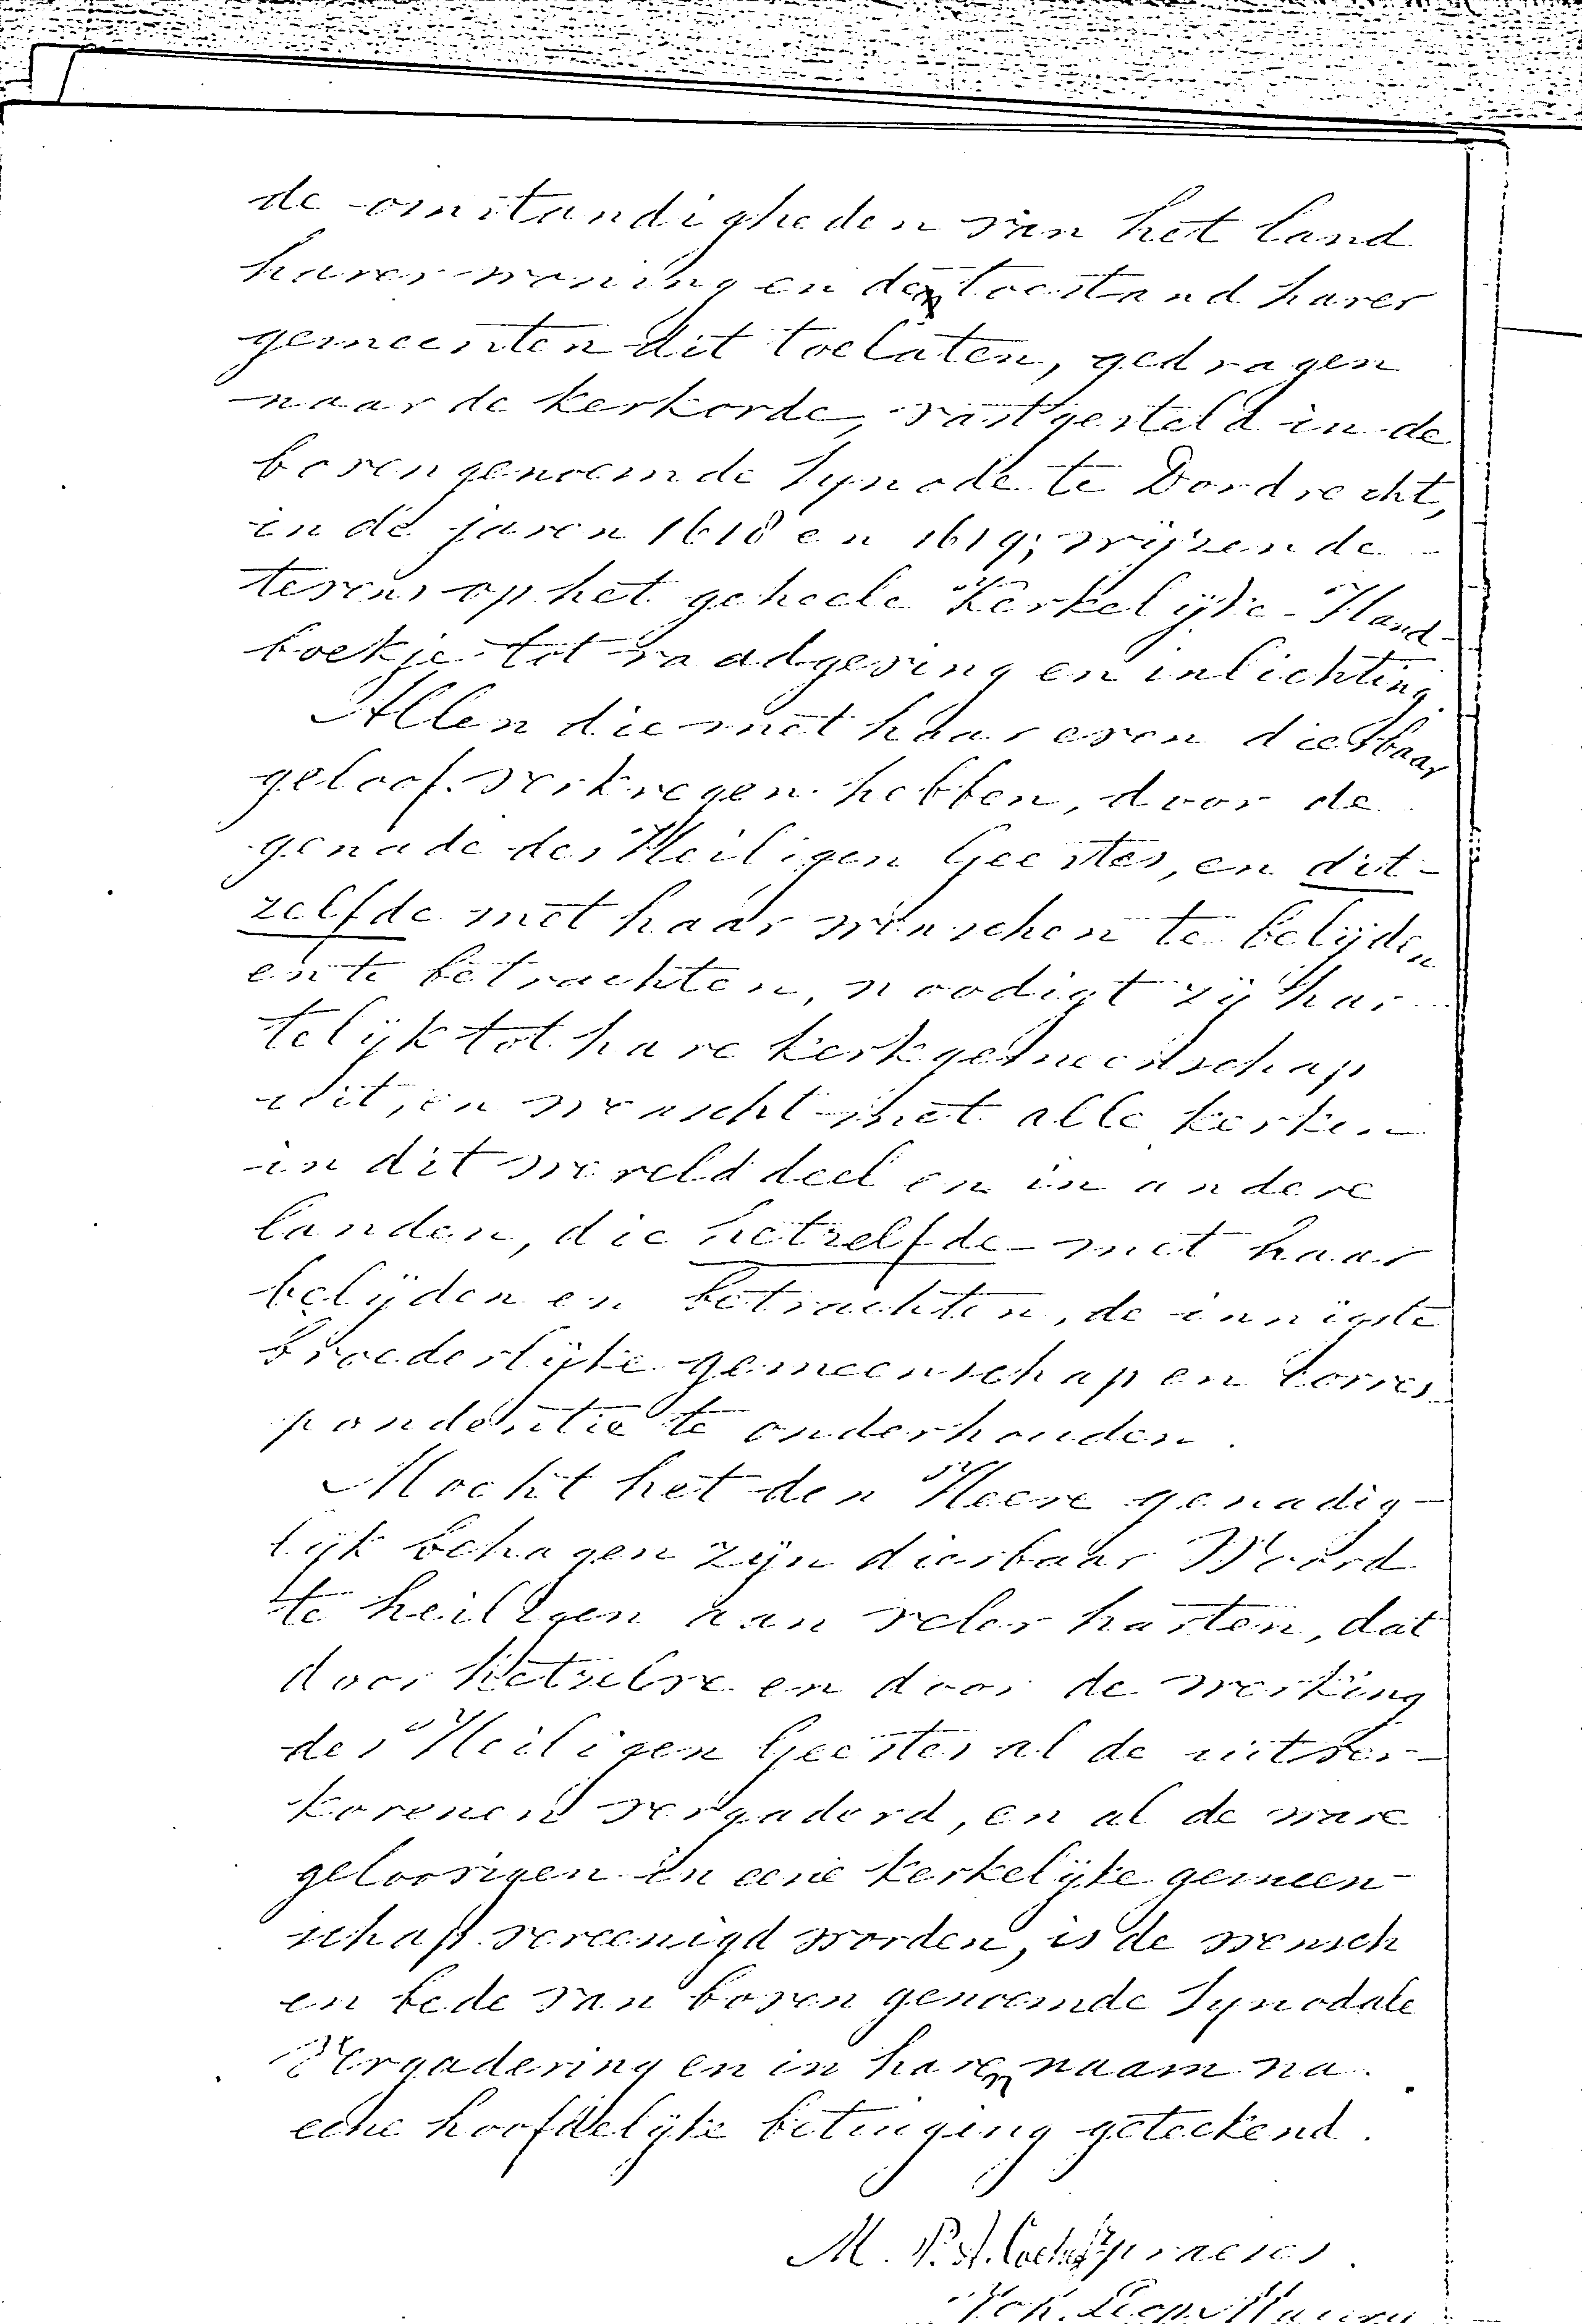 de omstandigheden van het land
harer woning en den toestand harer
gemeenten dit toelaten, gedragen
naar de kerkorde, vastgesteld in de
bovengenoemde Synode te Dordrecht,
in de jaren 1618 en 1619; wijzende
tevens op het geheele Kerkelijke-Hand-
boekje tot raadgeving en inlichting.
Allen die met haar even dierbaar
geloof verkregen hebben, door de
genade des Heiligen Geestes, en dit-
zelfde met haar wenschen te belijden
en te betrachten, noodigt zij har-
telijk tot hare kerkgemeenschap
uit, en wenscht met alle kerken
in dit werelddeel en in andere
landen, die hetzelfde met haar
belijden en betrachten, de innigste
broederlijke gemeenschap en corres-
pondentie te onderhouden.
Mocht het den Heere genadig-
lijk behagen zijn dierbaar Woord
te heiligen aan veler harten, dat
door hetzelve en door de werking
des Heiligen Geestes al de uitver-
korenen vergaderd, en al de ware
geloovigen in eene kerkelijke gemeen-
schap vereenigd worden, is de wensch
en bede van boven genoemde Synodale
Vergadering en in haren naam na
eene hoofdelijke betuiging geteekend.
M. P. A. praeses.
Joh.